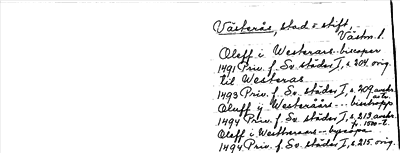 Västerås, stad o stift,
Västm. l.
Oleff i Westerars biscoper
1491 Priv. f. Sv. städer I, s. 204. orig.
til Westeras
1493 Priv. f. Sv. städer I, s. 209 avskr.
Oluff y Westeråårs... biscopp
1494 Priv. f. Sv. städer I, s. 213 avskr.
fr. 1500-t.
Oleff i Westerars byscopa
1494 Priv. f. Sv. städer I, s. 215. orig.